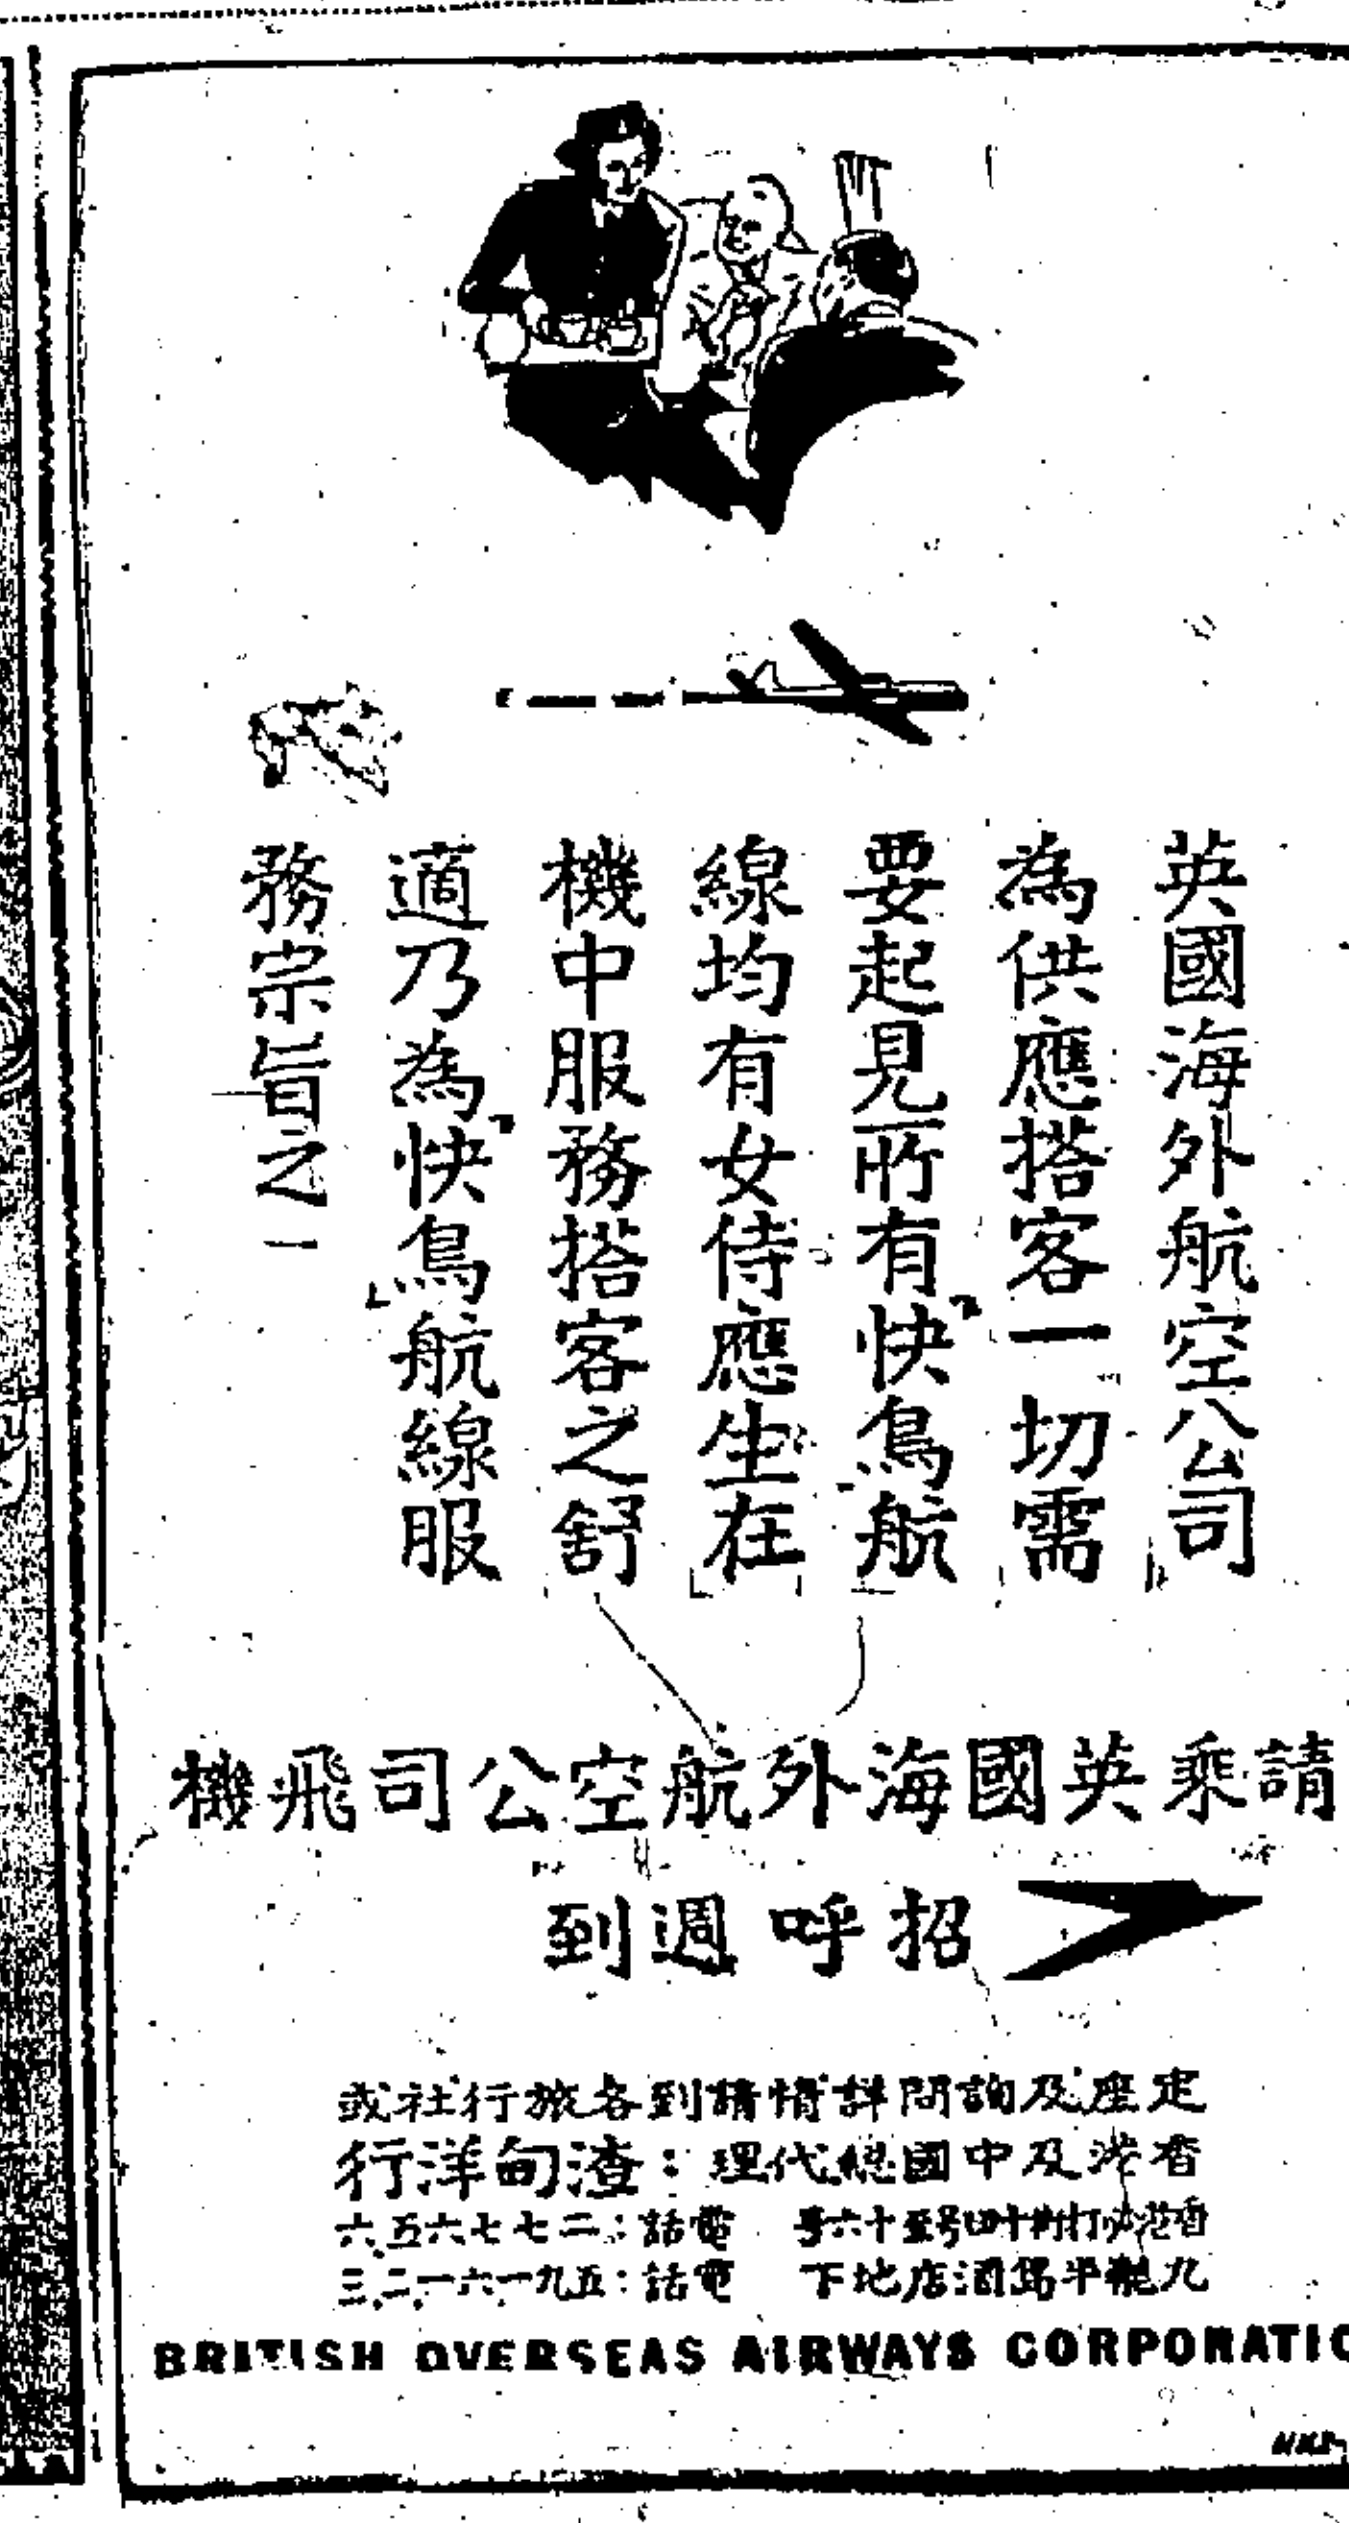 英國海外航空公司
為供應搭客一切需
要起見所有「快鳥」航
線均有女侍應生在
機中服務搭客之舒
適乃為「快鳥」航線服
務宗旨之一
請乘英國海外航空公司飛機
招呼週到
定座及詢問詳情請到各旅行社或
香港及中國總代理：渣甸洋行
香港 打街十四号至十六号 電話：二七七六五六
九龍半島酒店地下 電話：五九一六一二三
BRITISH OVERSEAS AIRWAYS CORPORATIO